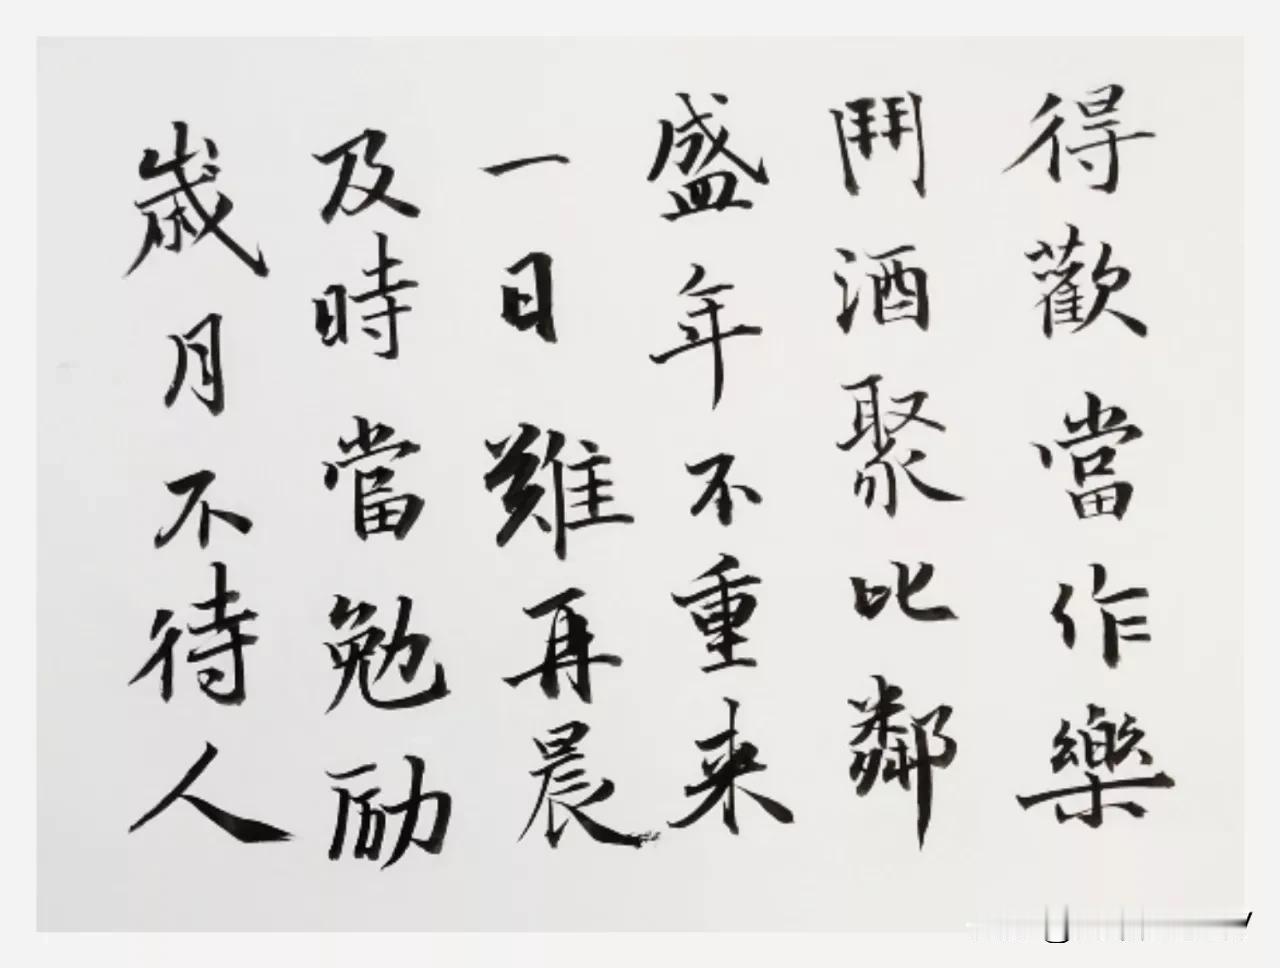 得歡當作樂
鬥酒聚比鄰
盛年不重来
一日難再晨
及時當勉励
歲月不待人